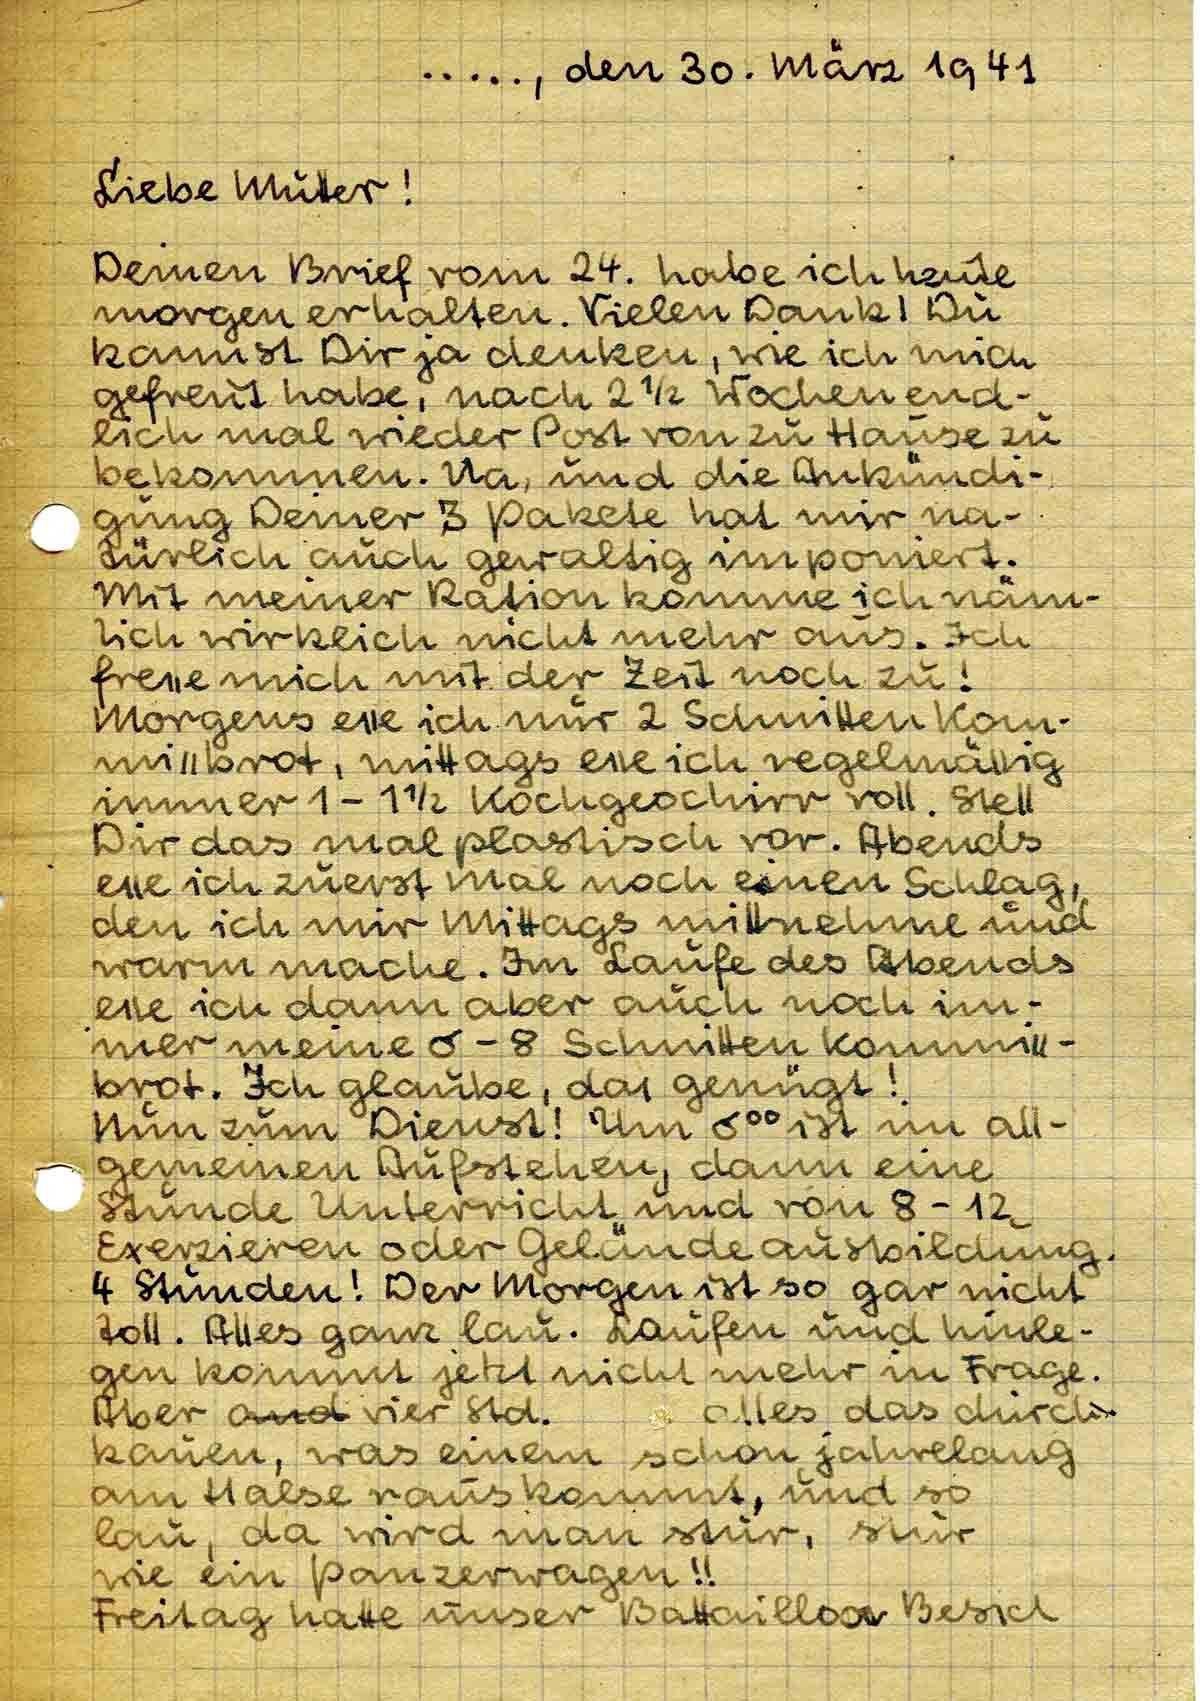 ....., den 30. März 1941
Liebe Mutter!
Deinen Brief vom 24. habe ich heute
morgen erhalten. Vielen Dank! Du
kannst Dir ja denken, wie ich mich
gefreut habe, nach 2 1/2 Wochen end-
lich mal wieder Post von zu Hause zu
bekommen. Na, und die Ankündi-
gung Deiner 3 Pakete hat mir na-
türlich auch gewaltig imponiert.
Mit meiner Ration komme ich näm-
lich wirklich nicht mehr aus. Ich
fresse mich mit der Zeit noch zu!
Morgens esse ich nur 2 Schnitten Kom-
missbrot, mittags esse ich regelmässig
immer 1 - 1 1/2 Kochgeschirr voll. Stell
Dir das mal plastisch vor. Abends
esse ich zuerst mal noch einen Schlag,
den ich mir Mittags mittnehme und
warm mache. Im Laufe des Abends
esse ich dann aber auch noch im-
mer meine 6 - 8 Schnitten Kommiss-
brot. Ich glaube, das genügt!
Nun zum Dienst! Um 6°° ist im all-
gemeinen Aufstehen, dann eine
Stunde Unterricht und von 8 - 12
Exerzieren oder Geländeausbildung.
4 Stunden! Der Morgen ist so gar nicht
toll. Alles ganz lau. Laufen und hinle-
gen kommt jetzt nicht mehr in Frage.
Aber and vier Std. alles das durch-
kauen, was einem schon jahrelang
am Halse rauskommt, und so
lau, da wird man stur, stur
wie ein Panzerwagen!!
Freitag hatte unser Battaillon Besich